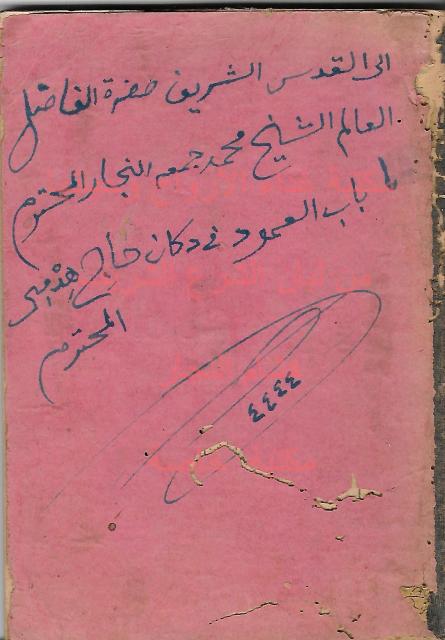 الى القدس الشريف حضرة الفاضل
العالم الشيخ محمد جمعه النجار المحترم
باب العمود في دكان حاج
المحترم
٤٤٤٤